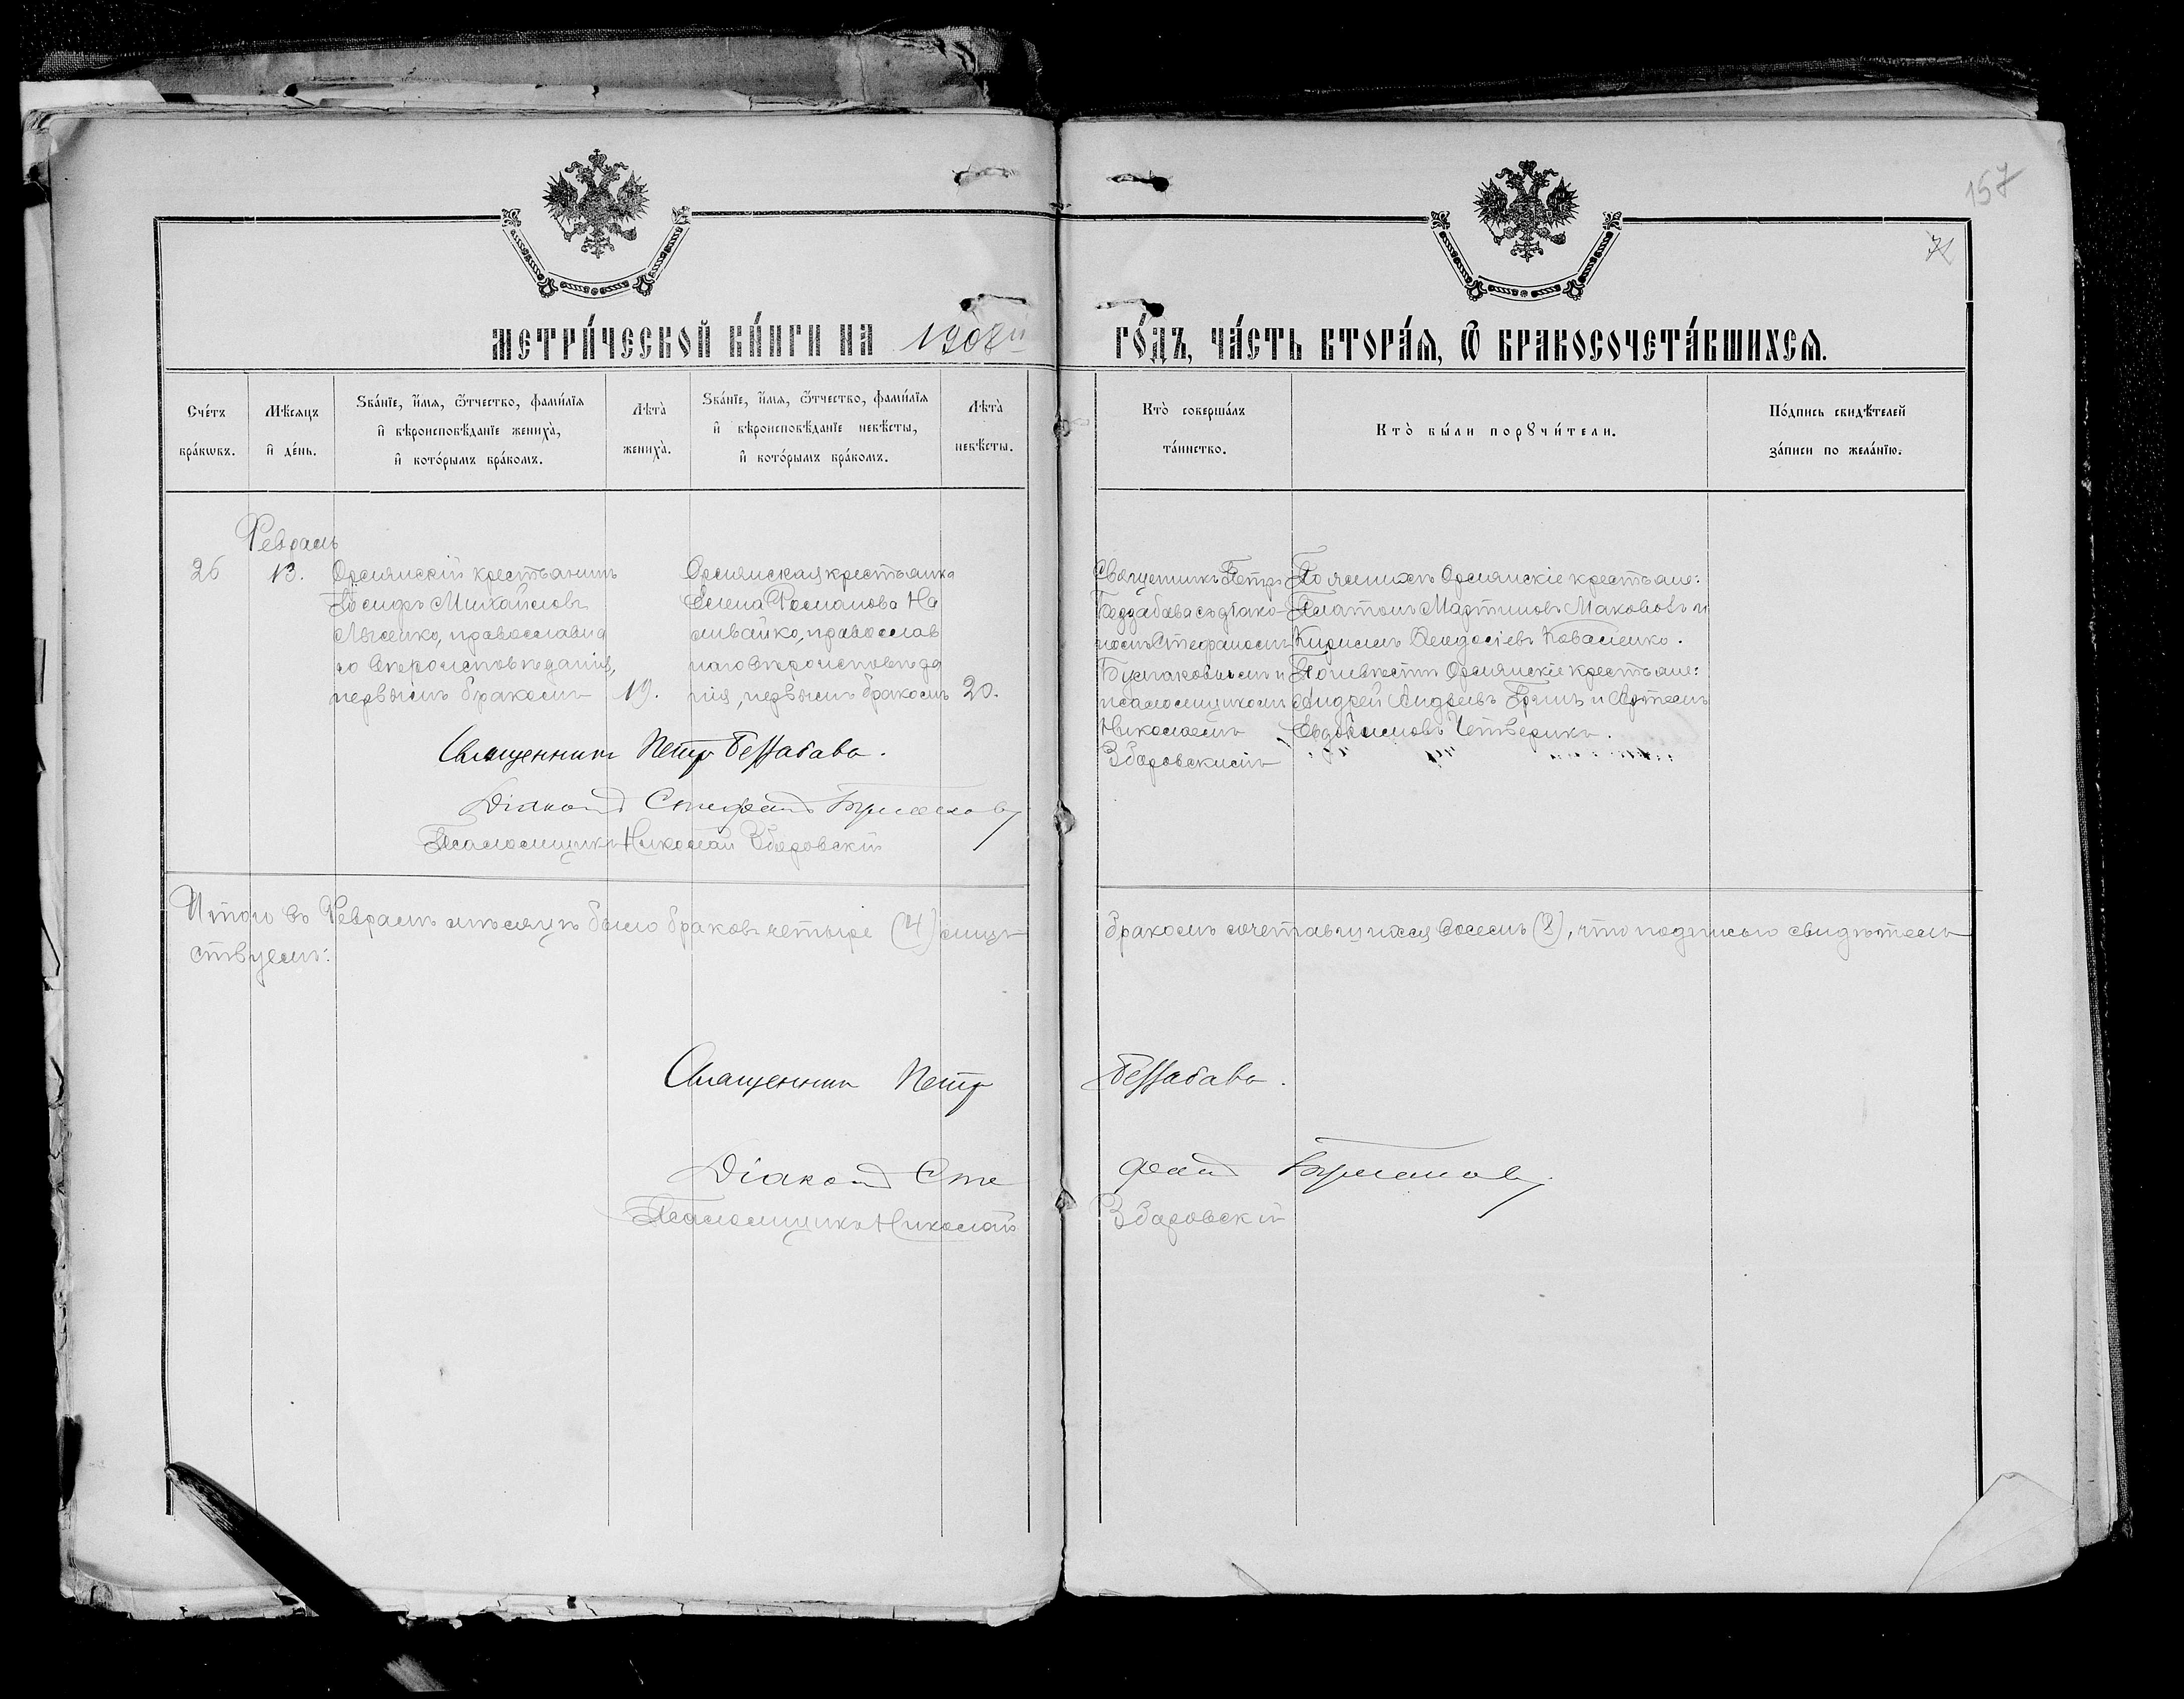 157
71
МЕТРИ́ЧЕСКОЙ КНИ́ГИ НА 1908й ГО́ДЪ, ЧА́СТЬ ВТОРА́Я, Ѿ БРАКОСОЧЕТА́ВШИХСЯ.
Сче́тъ бра́кѡвъ.
Мѣ́сяцъ и҆ де́нь.
Ѕва́нїе, и҆́мя, ѻ҆́тчество, фами́лїя и҆ вѣроисповѣ́данїе жениха̀, и҆ кото́рымъ бра́комъ.
Лѣта̀ жениха̀.
Ѕва́нїе, и҆́мя, ѻ҆́тчество, фами́лїя и҆ вѣроисповѣ́данїе невѣ́сты, и҆ кото́рымъ бра́комъ.
Лѣта̀ невѣ́сты.
Кто̀ соверша́лъ та́инство.
Кто̀ бы́ли порꙋчи́тели.
По́дпись свидѣ́телей за́писи по жела́нїю.
Февраль
26
13.
крестьянинъ
Іосифъ Михайловъ
православна
го вѣроисповѣданія,
первымъ бракомъ
19.
крестьянка
Елена Романова На
ливайко, православ
наго вѣроисповѣда
нія, первымъ бракомъ
20.
Священникъ Петръ
Беззабава съ діако-
номъ Стефаномъ
Булгаковымъ и
псаломщикомъ
Николаемъ
Збаровскимъ
По женихѣ крестьяне:
Платонъ Мартиновъ и
Кириллъ Ѳеодосіевъ Коваленко.
По невѣстѣ крестьяне:
Андрей Андреевъ и Артемъ
Евдокимовъ Четверикъ.
Священникъ Петръ Беззабава.
Діаконъ Стефанъ Булгаковъ
Псаломщикъ Николай Збаровскій
Итого въ Февралѣ мѣсяцѣ было браковъ четыре (4) лицъ бракомъ сочетавшихся восемь (8), что подписью свидѣтель
ствуемъ:
Священникъ Петръ Беззабава.
Діаконъ Стефанъ Булгаковъ
Псаломщикъ Николай Збаровскій